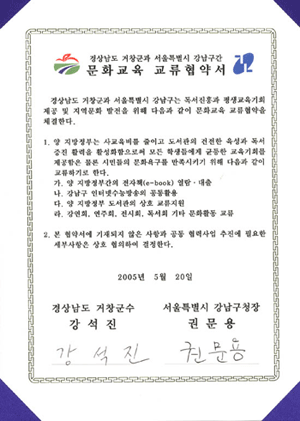 경상남도 거창군과 서울특별시 강남구간
문화교육 교류협약서
경상남도 거창군과 서울특별시 강남구는 독서진흥과 평생교육기회
제공 및 지역문화 발전을 위해 다음과 같이 문화교육 교류협약을
체결한다.
1. 양 지방정부는 사교육비를 줄이고 도서관의 건전한 육성과 독서
증진 활력을 활성화함으로써 모든 학생들에게 균등한 교육기회를
제공함은 물론 시민들의 문화욕구를 만족시키기 위해 다음과 같이
교류하기로 한다.
가. 양 지방정부간의 전자책(e-book) 열람·대출
나. 강남구 인터넷수능방송의 공동활용
다. 양 지방정부 도서관의 상호 교류지원
라. 강연회, 연주회, 전시회, 독서회 기타 문화활동 교류
2. 본 협약서에 기재되지 않은 사항과 공동 협력사업 추진에 필요한
세부사항은 상호 협의하여 결정한다.
2005년 5월 20일
경상남도 거창군수 서울특별시 강남구청장
강석진 권문용
강석진 권문용